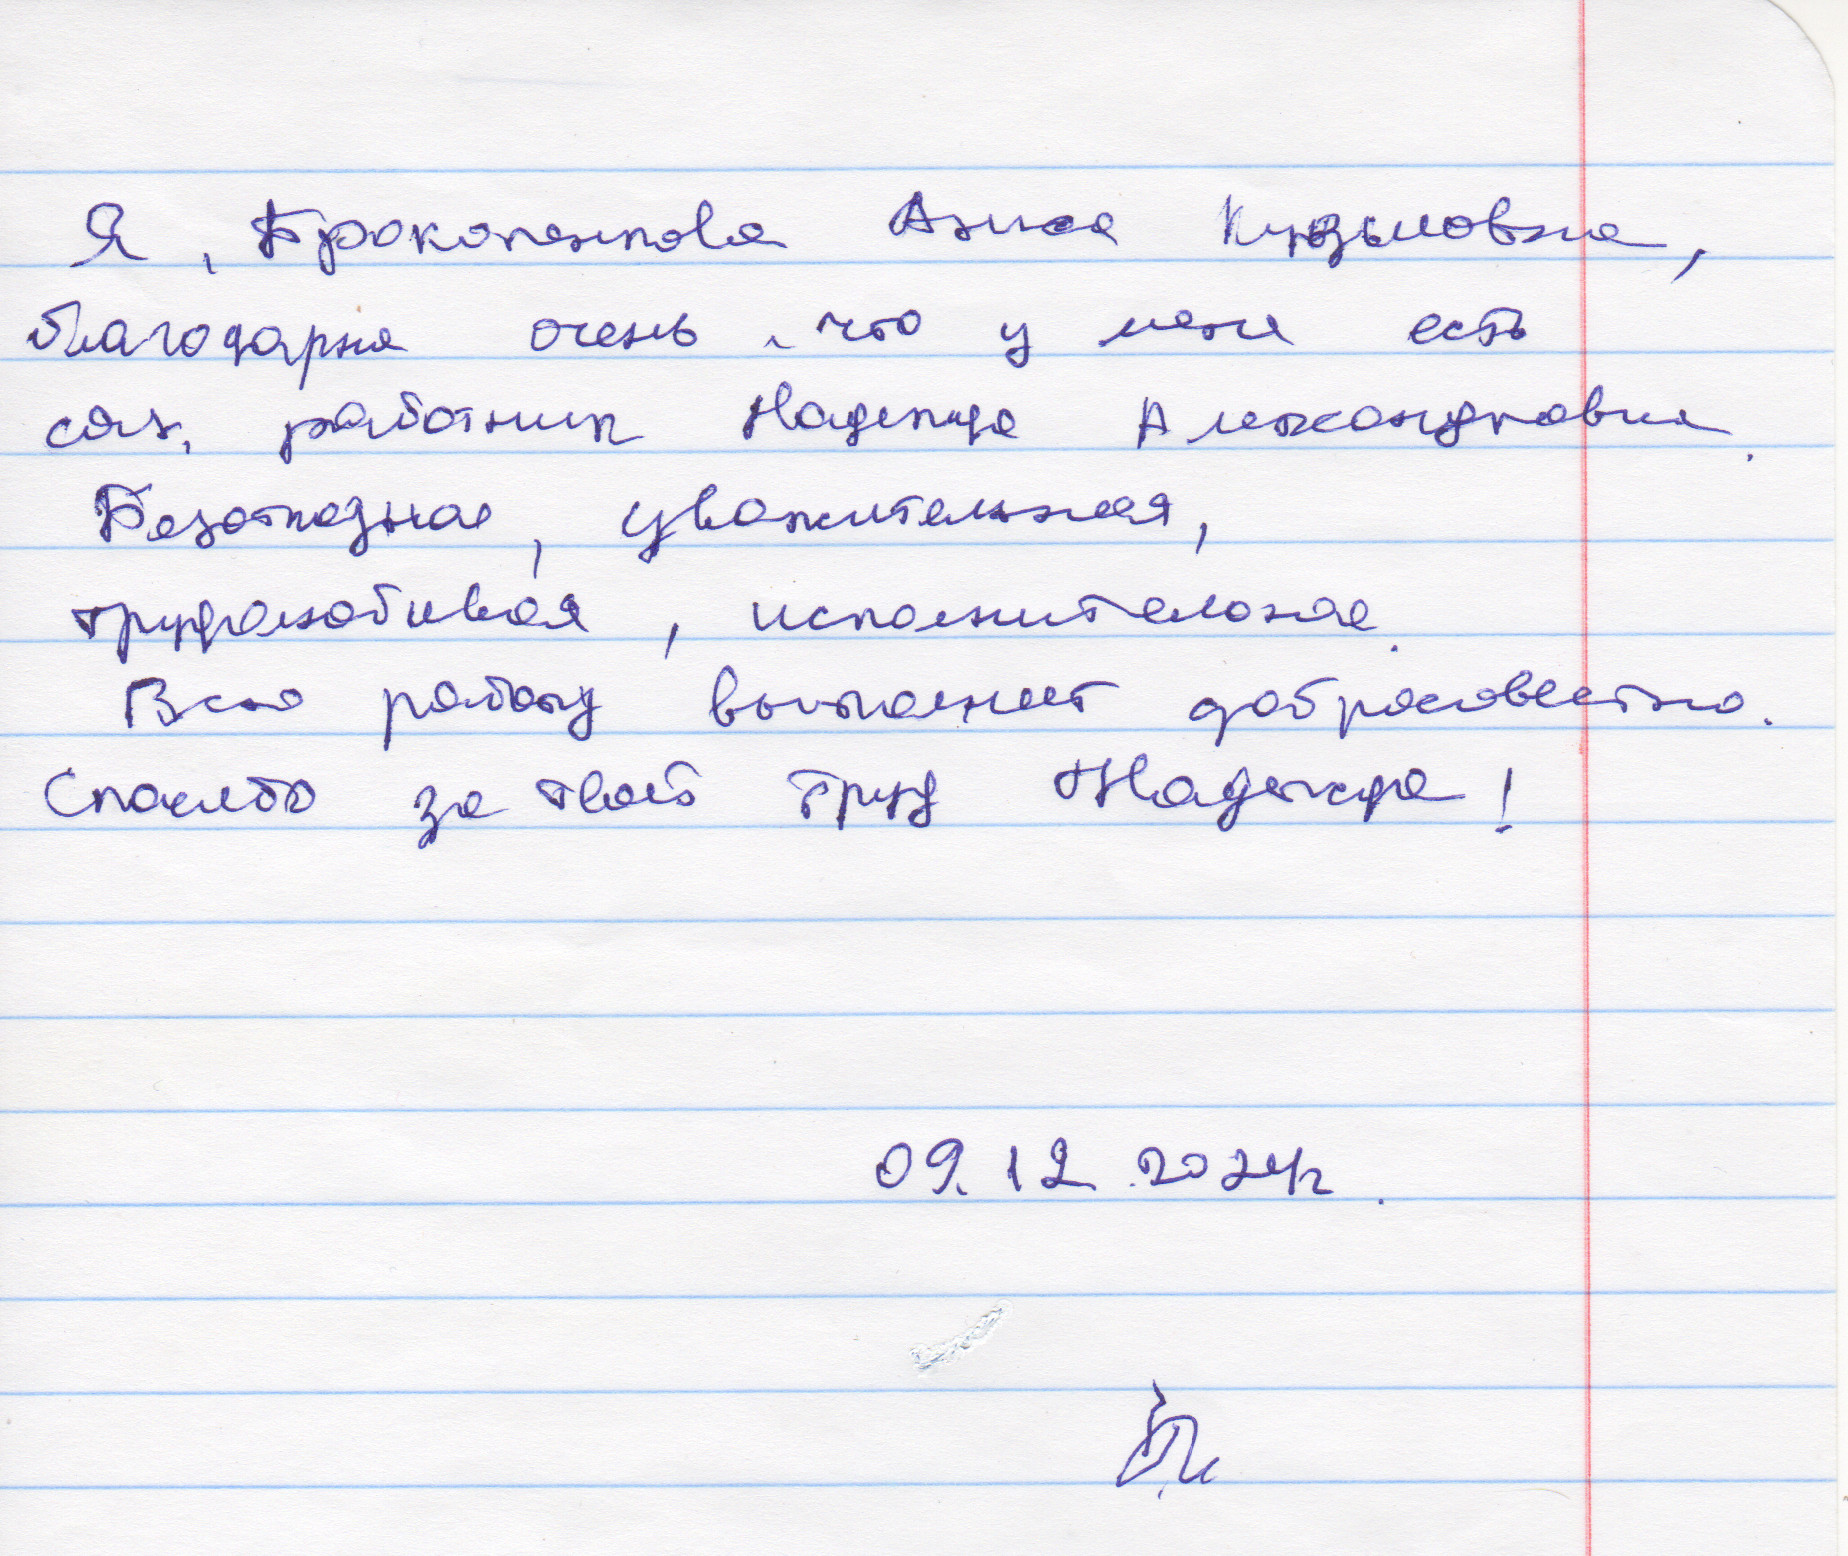 Я, Прокопенкова Анна Кузьмовна,
благодарна очень, что у меня есть
соц. работник Надежда Александровна.
Безотказная, уважительная,
трудолюбивая, исполнительная.
Всю работу выполняет добросовестно.
Спасибо за твой труд Надежда!
09.12.2024г.